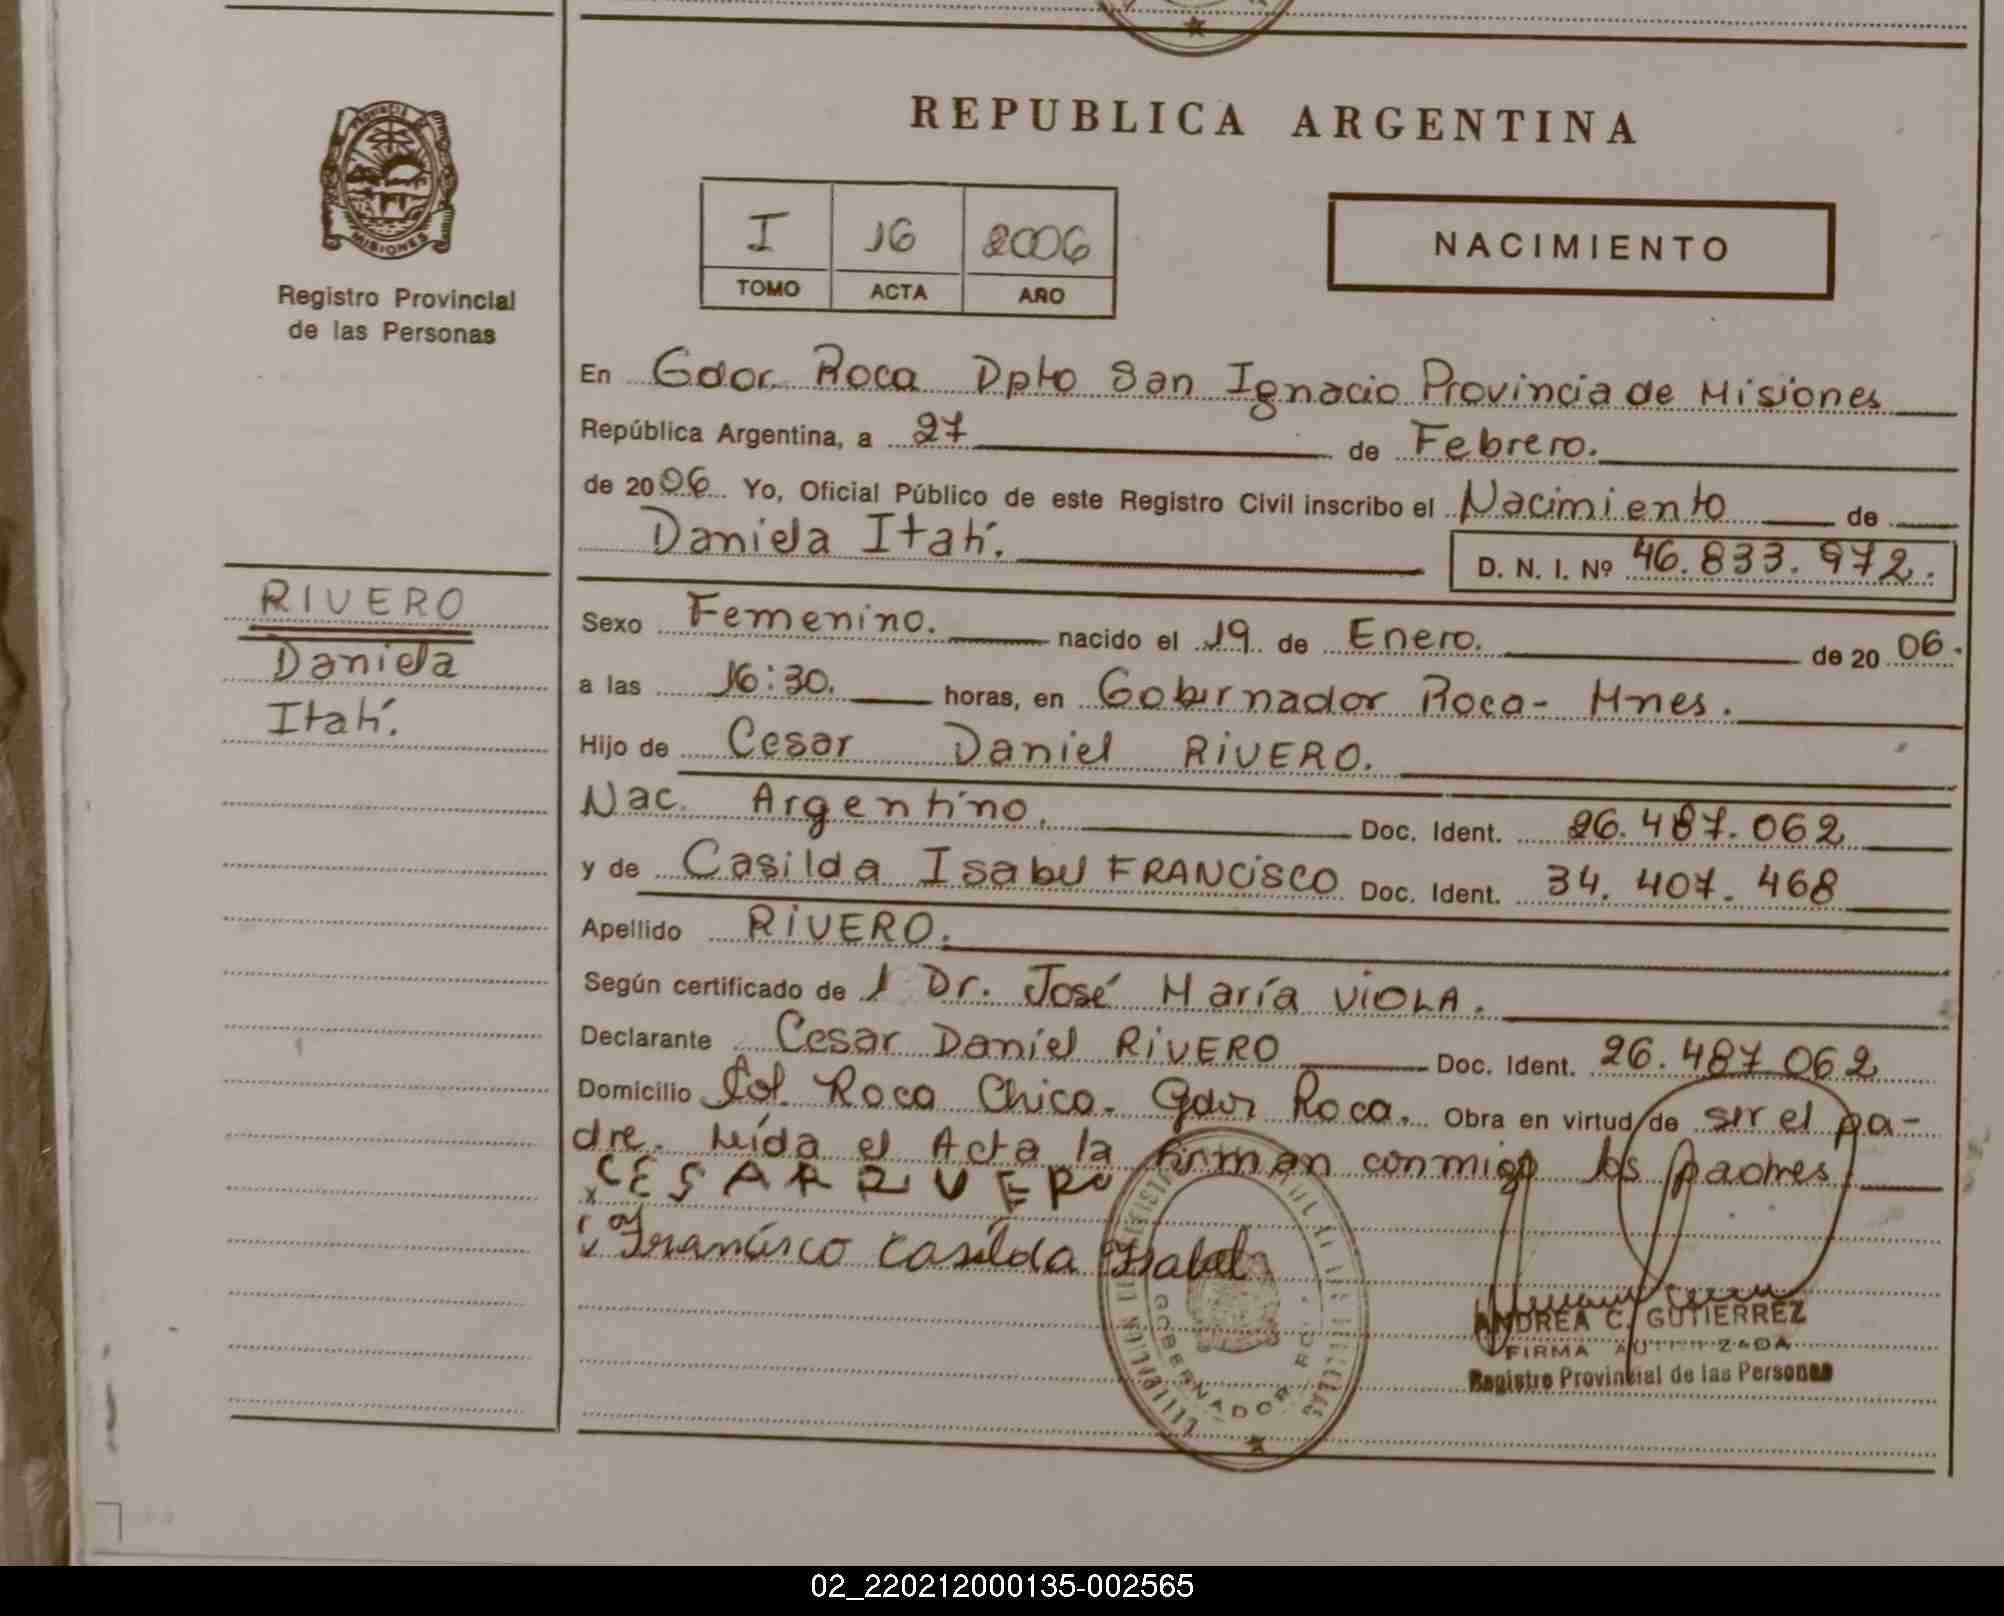 REPUBLICA ARGENTINA
PROVINCIA DE
MISIONES
Registro Provincial
de las Personas
I 16 2006
TOMO ACTA AÑO
NACIMIENTO
En Gdor. Roca Dpto San Ignacio Provincia de Misiones
República Argentina, a 27 de Febrero.
de 2006 Yo, Oficial Público de este Registro Civil inscribo el Nacimiento de
Daniela Itatí.
D. N. I. Nº 46.833.972.
RIVERO
Daniela
Itatí.
Sexo Femenino. nacido el 19 de Enero. de 2006.
a las 16:30. horas, en Gobernador Roca - Mnes.
Hijo de Cesar Daniel RIVERO.
Nac. Argentino. Doc. Ident. 26.487.062
y de Casilda Isabel FRANCISCO Doc. Ident. 34.407.468
Apellido RIVERO.
Según certificado de 1 Dr. José María VIOLA.
Declarante Cesar Daniel RIVERO Doc. Ident. 26.487.062
Domicilio Col. Roca Chica. Gdor Roca. Obra en virtud de ser el pa-
dre. Leída el Acta la firman conmigo los padres.
x CESAR RIVERO
Francisco Casilda Isabel
GOBERNADOR ROCA
ANDREA C. GUTIERREZ
FIRMA AUTORIZADA
Registro Provincial de las Personas
02_220212000135-002565